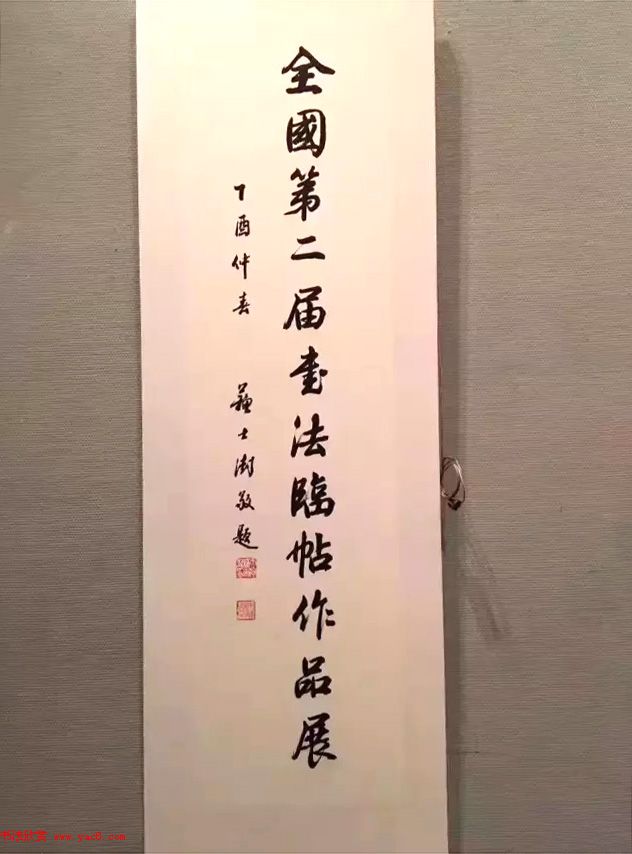 全國第二届書法臨帖作品展
丁酉仲春 蘇士澍敬題
书法欣赏 www.yac8.com